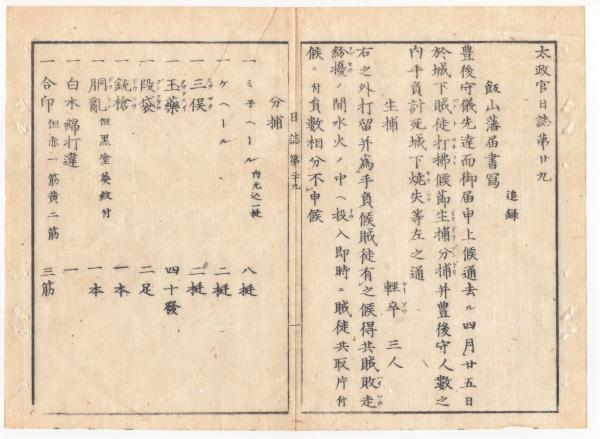 太政官日誌第廿九
追録
飯山藩届書寫
豊後守儀先達而御届申上候通去ル四月廿五日
於城下賊徒打拂候節生捕分捕并豊後守人數之
内手負討死城下燒失等左之通
生捕
輕卒 三人
右之外打留并爲手負候賊徒有之候得共賊敗走
紛擾ノ間水火ノ中ヘ投入即時ニ賊徒共取片付
候ニ付員數相分不申候
日誌第二十九
分捕
一ミ子ヘール 内元込一挺 八挺
一ケヘール 二挺
一三俣 二挺
一玉藥 四十發
一段袋 二足
一銃槍 一本
一胴亂 但黒塗葵紋付 一本
一白木綿打違 一
一合印 但赤一筋黄二筋 三筋